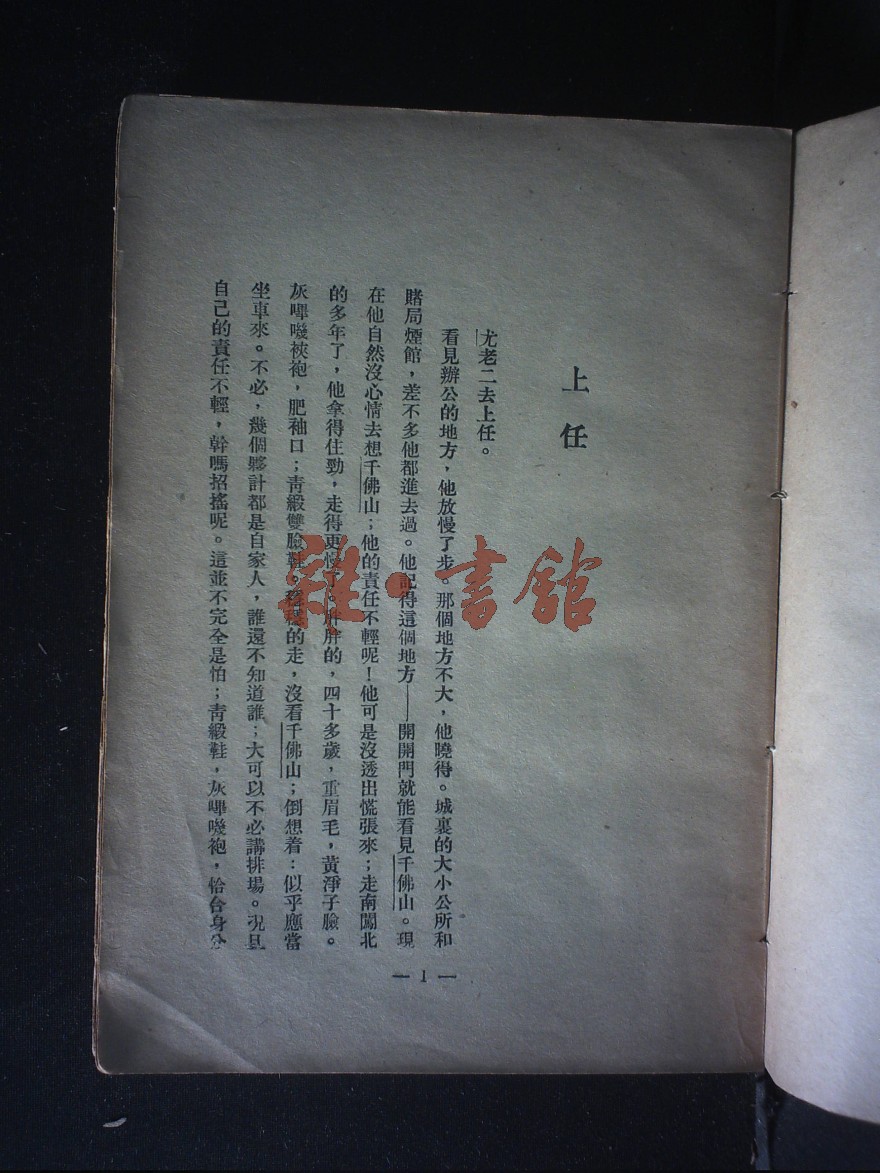 上任
尤老二去上任。
看見辦公的地方，他放慢了步。那個地方不大，他曉得。城裏的大小公所和
賭局煙館，差不多他都進去過。他記得這個地方——開開門就能看見千佛山。現
在他自然沒心情去想千佛山；他的責任不輕呢！他可是沒透出慌張來；走南闖北
的多年了，他拿得住勁，走得更慢了。胖胖的，四十多歲，重眉毛，黃淨子臉。
灰嗶嘰裌袍，肥袖口；靑緞雙臉鞋。穩穩的走，沒看千佛山；倒想着：似乎應當
坐車來。不必，幾個夥計都是自家人，誰還不知道誰；大可以不必講排場。況且
自己的責任不輕，幹嗎招搖呢。這並不完全是怕；靑緞鞋，灰嗶嘰袍，恰合身分
— 1 —
雜·書館